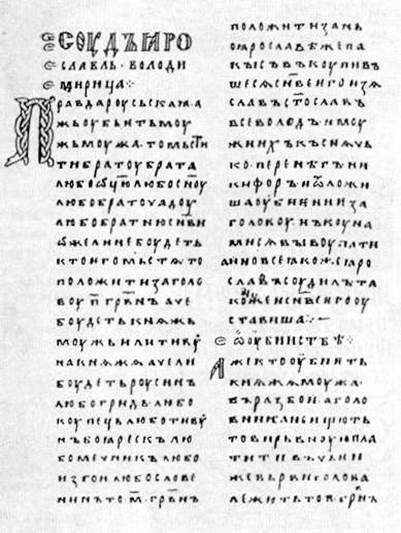 СОУДЪ ꙖРО
СЛАВЛЬ · ВОЛОДИ
МИРИЦА ⁘
Правда роусьскаꙗ · а
жь оубьѥть моу
жь моужа · то мьсти
ти братоу брата
любо ѿцю любо сн҃оу
любо братоучадоу
любо братню сн҃ви
ѡже ли не боудеть
кто ѥго мьстѧ то
положити за голо
воу · п҃ · грвн҃ъ аче
боудеть кнѧжь
моужь или тиву
на кнѧжа аче ли
боудеть роусинъ
любо гридь · любо
коупець любо тиву
нъ боꙗрескъ лю
бо мечникъ любо
изгои любо слове
нинъ то · м҃ · грвн҃ъ
положити за нь
по ꙗрославѣ же па
кы съвъкоупивъ
шесѧ сн҃ве ѥго изѧ
славъ ст҃ославъ
всеволодъ и моу
жи ихъ къснѧчь
ко · перенѣгъ ни
кифоръ и ѿложи
ша оубиѥниѥ за
головоу нъ коуна
ми сѧ выкоупати
а ино все ꙗкоже ꙗро
славъ соудилъ та
коже и сн҃ве ѥго оу
ставиша ⁘ —
Ѡ оубииствѣ ⁘
Аже кто оубиѥть
кнѧжѧ моужа ·
въ разбои · а голо
вника не ищють
то вирьвноую пла
тити въ чьѥи
же вьрви голова
лежить то · п҃ · грвн҃ъ